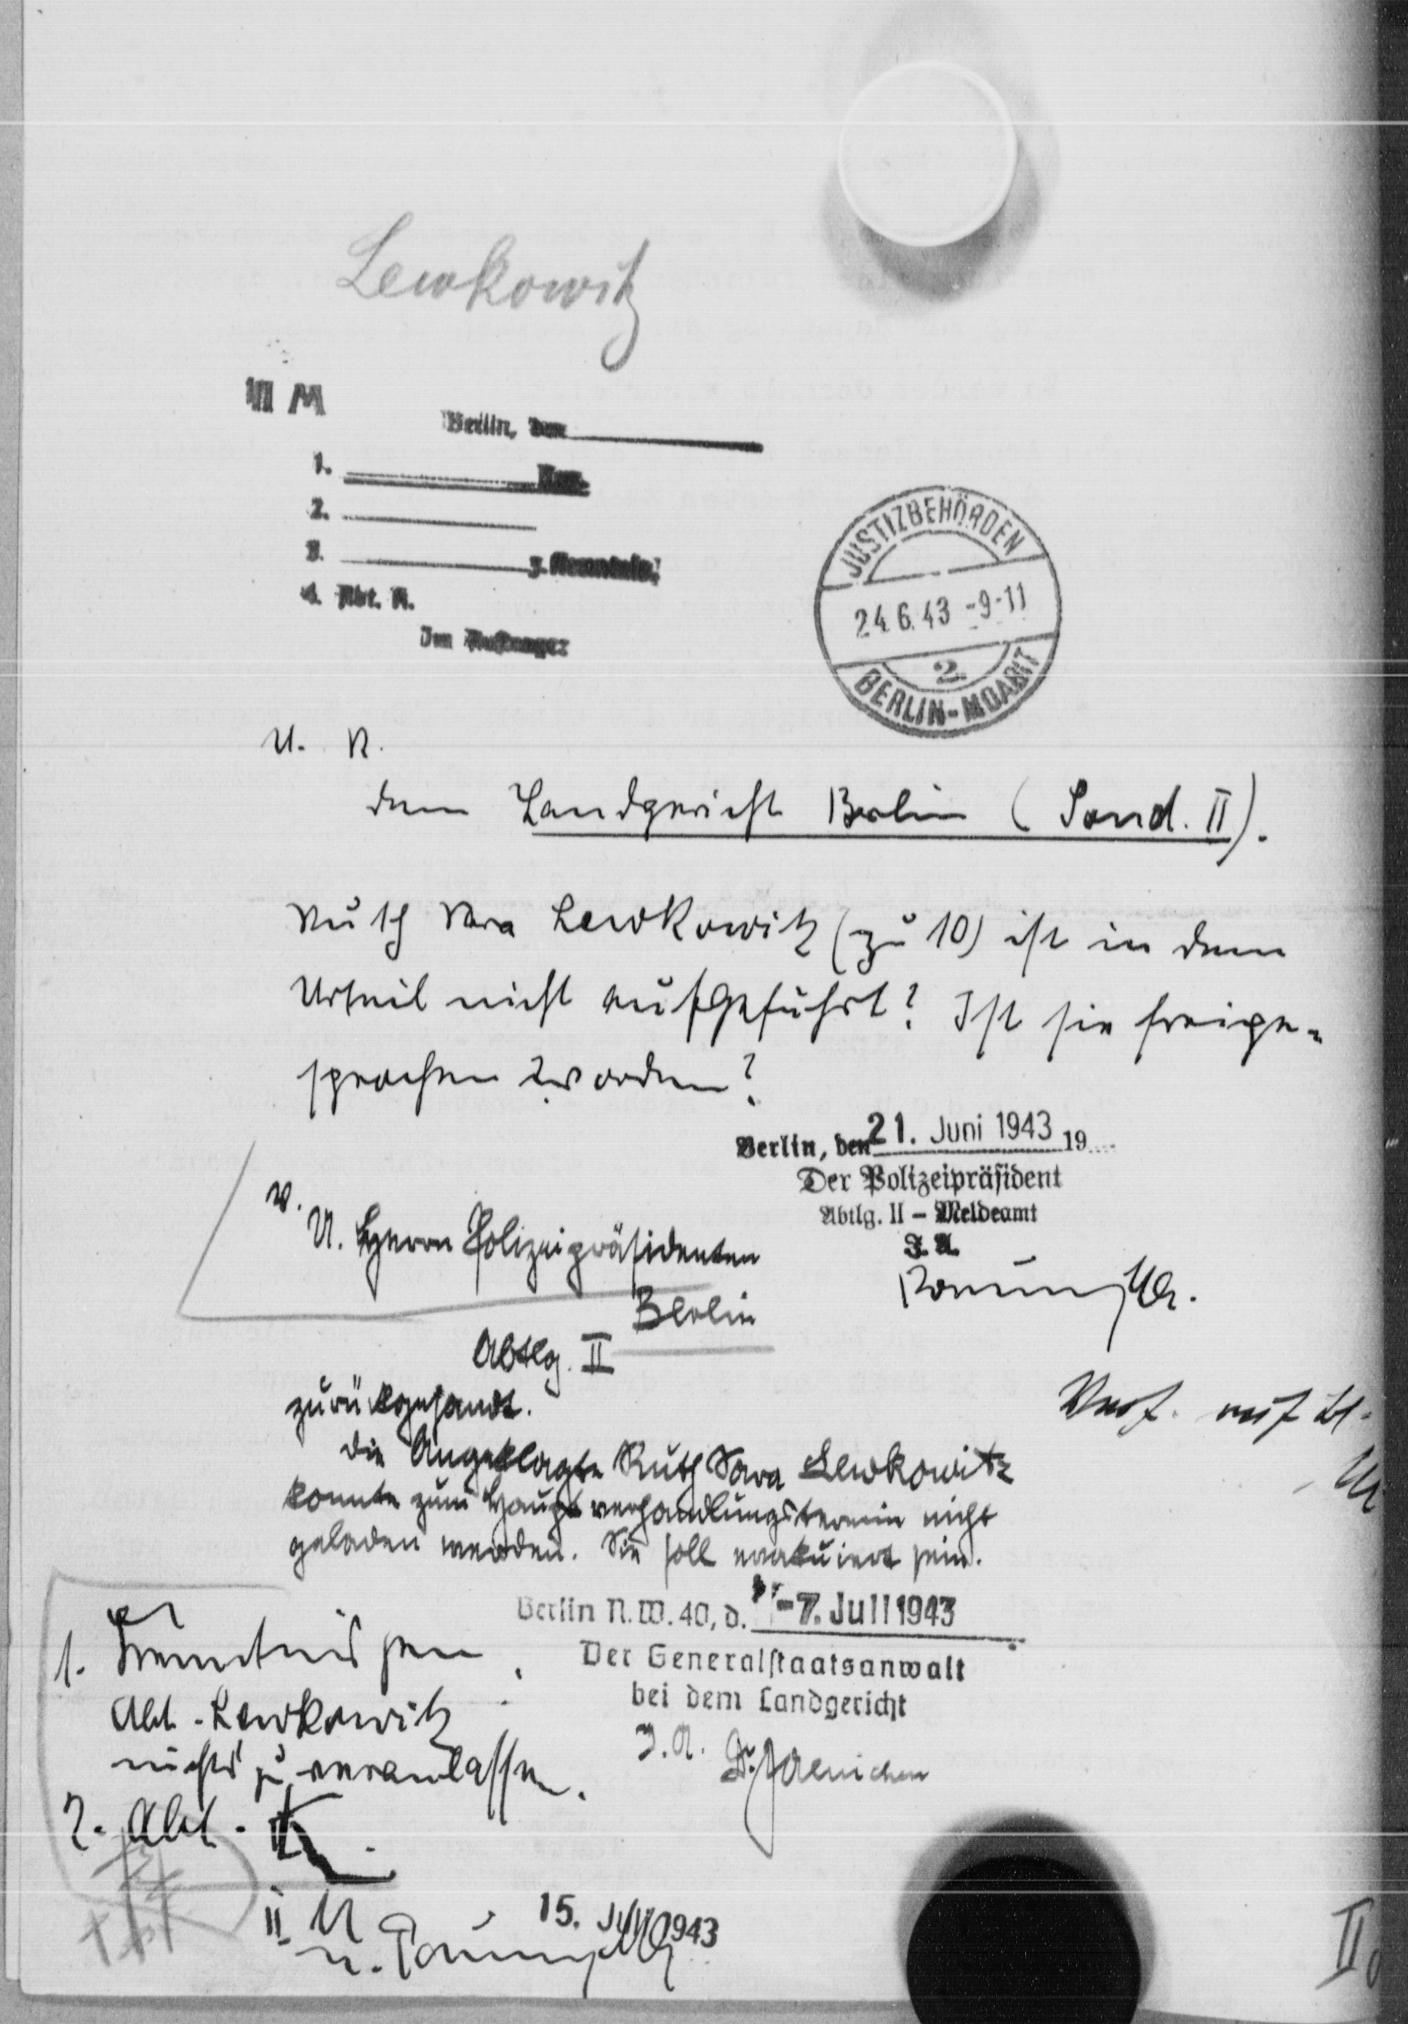 Lewkowitz
II M
Berlin, den
1.
2.
3. z. Kenntnis.
4. Abt. K.
Im Auftrage:
JUSTIZBEHÖRDEN
24.6.43 -9-11
2.
BERLIN-MOABIT
U. R.
dem Landgericht Berlin (Sond. II).
Ruth Sara Lewkowitz (zu 10) ist in dem
Urteil nicht aufgeführt? Ist sie freige-
sprochen worden?
Berlin, den 21. Juni 1943 19
Der Polizeipräsident
Abtlg. II – Meldeamt
J. A.
W.
U. Herrn Polizeipräsidenten
Berlin
Abtlg. II
zurückgesandt.
Die Angeklagte Ruth Sara Lewkowitz
konnte zum Hauptverhandlungstermin nicht
geladen werden. Sie soll evakuiert sein.
Berlin N.W. 40, d. -7. Juli 1943
Der Generalstaatsanwalt
bei dem Landgericht
J. A. Dr. Jaenichen
1. Kenntnis gen.
Abt. Lewkowitz
nichts zu veranlassen.
2. Abt. K
II M
15. Juli 1943
II